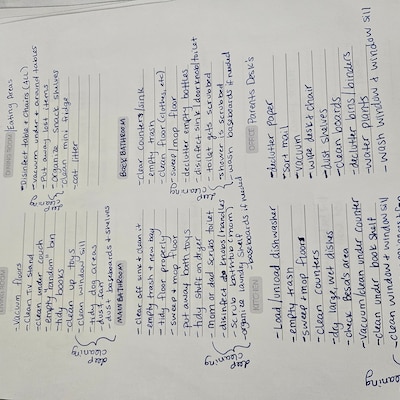 LIVING ROOM
-Vacuum floors
-Clean TV stand
-clean under couch
-empty "random" bin
-tidy books
-clean up toys
-clean window sill
-tidy dog areas
-dust decor
-dust baseboards & shelves
deep cleaning
MAIN BATHROOM
-clear off sink & wipe it
-empty trash & new bag
-tidy floor properly
-sweep & mop floor
-put away bath toys
-tidy stuff on dryer
-mom or dad scrubs toilet
-scrub bathtub (mom)
-organize laundry shelf
baseboards if needed
deep cleaning
KITCHEN
-Load/unload dishwasher
-empty trash
-sweep & mop floors
-clean counters
-dry large, wet dishes
-check Besa's area
-vacuum/clean under counter
-clean under book shelf
-clean window & window sill
deep cleaning
DINING ROOM Eating Areas
-Disinfect table & Chairs (ALL)
-vacuum under & around tables
-Put away lost items
-organize snack shelves
-clean mini fridge
-cat litter
deep cleaning
BACK BATHROOM
-clear counters/sink
-empty trash
-clean floor (clothes, etc)
-sweep/mop floor
-declutter empty bottles
-disinfect sink/door knob/toilet
-toilet gets scrubbed
-shower is scrubbed
-wash baseboards if needed
deep cleaning
OFFICE Parents Desk's
-declutter paper
-sort mail
-vacuum
-wipe desk & chair
-dust shelves
-clean boards
-declutter bins/binders
-water plants
-wash window & window sill